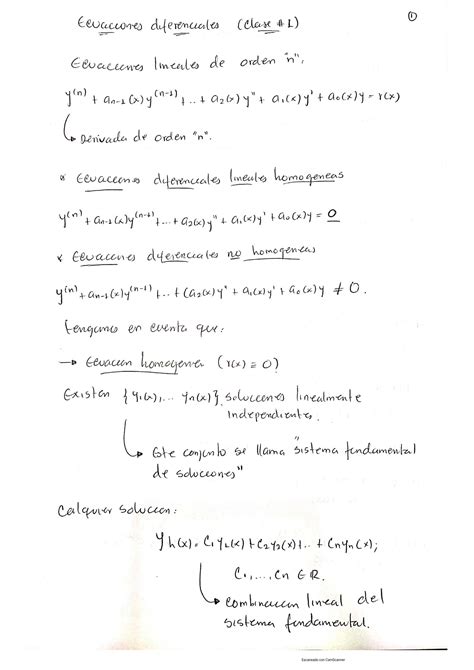 ①
Ecuaciones diferenciales (Clase #1)
Ecuaciones lineales de orden "n".
y⁽ⁿ⁾ + aₙ₋₁(x)y⁽ⁿ⁻¹⁾ + .. + a₂(x)y" + a₁(x)y' + a₀(x)y = r(x)
↳ Derivada de orden "n".
* Ecuaciones diferenciales lineales homogeneas
y⁽ⁿ⁾ + aₙ₋₁(x)y⁽ⁿ⁻¹⁾ + ... + a₂(x)y" + a₁(x)y' + a₀(x)y = 0
* Ecuaciones diferenciales no homogeneas
y⁽ⁿ⁾ + aₙ₋₁(x)y⁽ⁿ⁻¹⁾ + .. + (a₂(x)y" + a₁(x)y' + a₀(x)y ≠ 0.
tengamos en cuenta que:
→ Ecuacion homogenea (r(x) = 0)
Existen {y₁(x),... yₙ(x)}, soluciones linealmente
independientes.
↳ Este conjunto se llama "sistema fundamental
de soluciones"
Calquier solucion:
yh(x) = C₁y₁(x) + C₂y₂(x) + .. + Cₙyₙ(x);
C₁,...,Cₙ ∈ ℝ.
↳ combinacion lineal del
sistema fundamental.
Escaneado con CamScanner